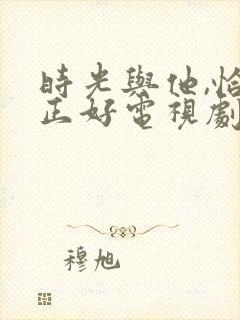 時光與他,恰
正好電視劇
穆旭